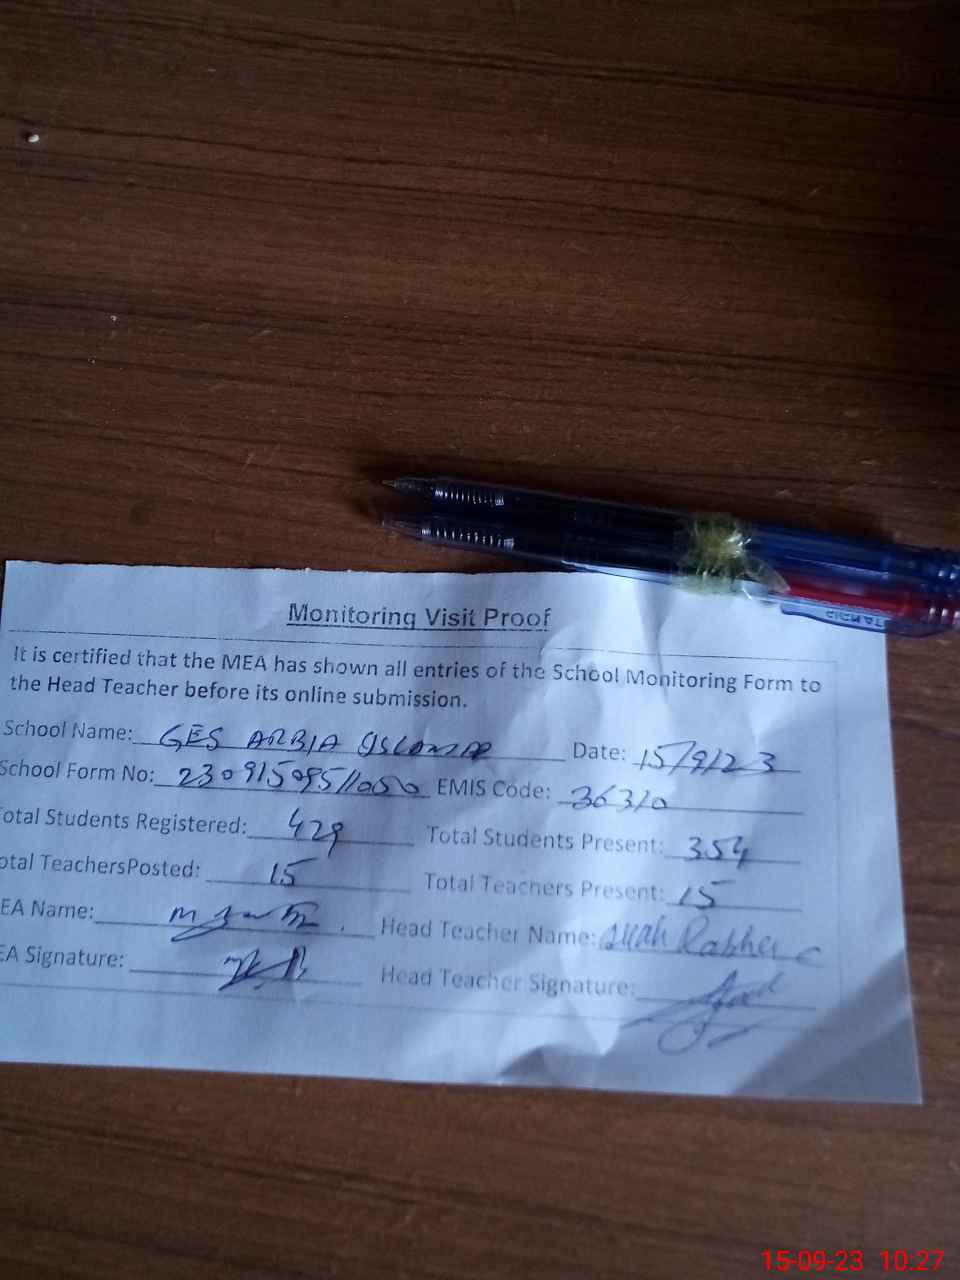 Monitoring Visit Proof
It is certified that the MEA has shown all entries of the School Monitoring Form to
the Head Teacher before its online submission.
School Name: GES ARBIA ISLAMIA Date: 15/9/23
School Form No: EMIS Code: 36310
otal Students Registered: 429 Total Students Present: 354
otal TeachersPosted: 15 Total Teachers Present: 15
EA Name: Head Teacher Name: Allah Rakha
EA Signature: Head Teacher Signature:
15-09-23 10:27